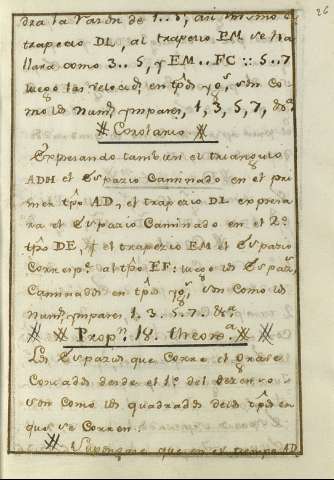 26
dra la razon de 1..3, asi mismo el
trapecio DL, al trapecio EM se ha
llara como 3..5, y EM..FC :: 5..7
luego las velocid.s en tp.os yg.s, son co
mo los num.s ympares, 1, 3, 5, 7, &.a
Corolario.
Expresando tambien el triangulo
ADH el Espazio Caminado en el pri
mer tp.o AD, el trapecio DL expresa
ra el Espazio Caminado en el 2.o
tp.o DE, y el trapecio EM el Espazio
Corresp.te al tp.o EF: luego los Espaz.s
Caminados en tp.os yg.s, son como los
num.s ympares 1. 3. 5. 7. &.a
Prop.n 18. theore.a
Los Espazios que Corre el grave
desde el 1.o del descenso
son como los quadrados de los tp.os en
que se Corren.
Supongase que en el tiempo AD